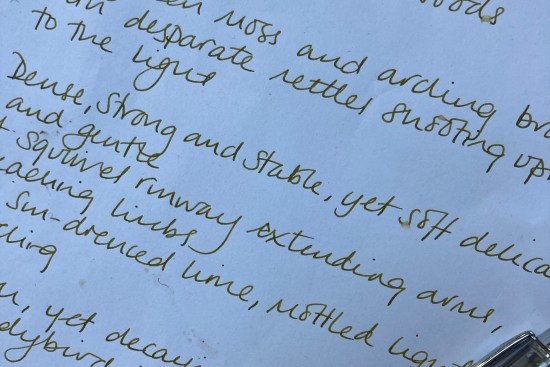 moss and arching
desparate nettles shooting up
to the light
Dense, strong and stable, yet soft delica
and gentle
squirrel runway extending arms,
limbs
sun-drenced lime, mottled light
yet decayi
dybird